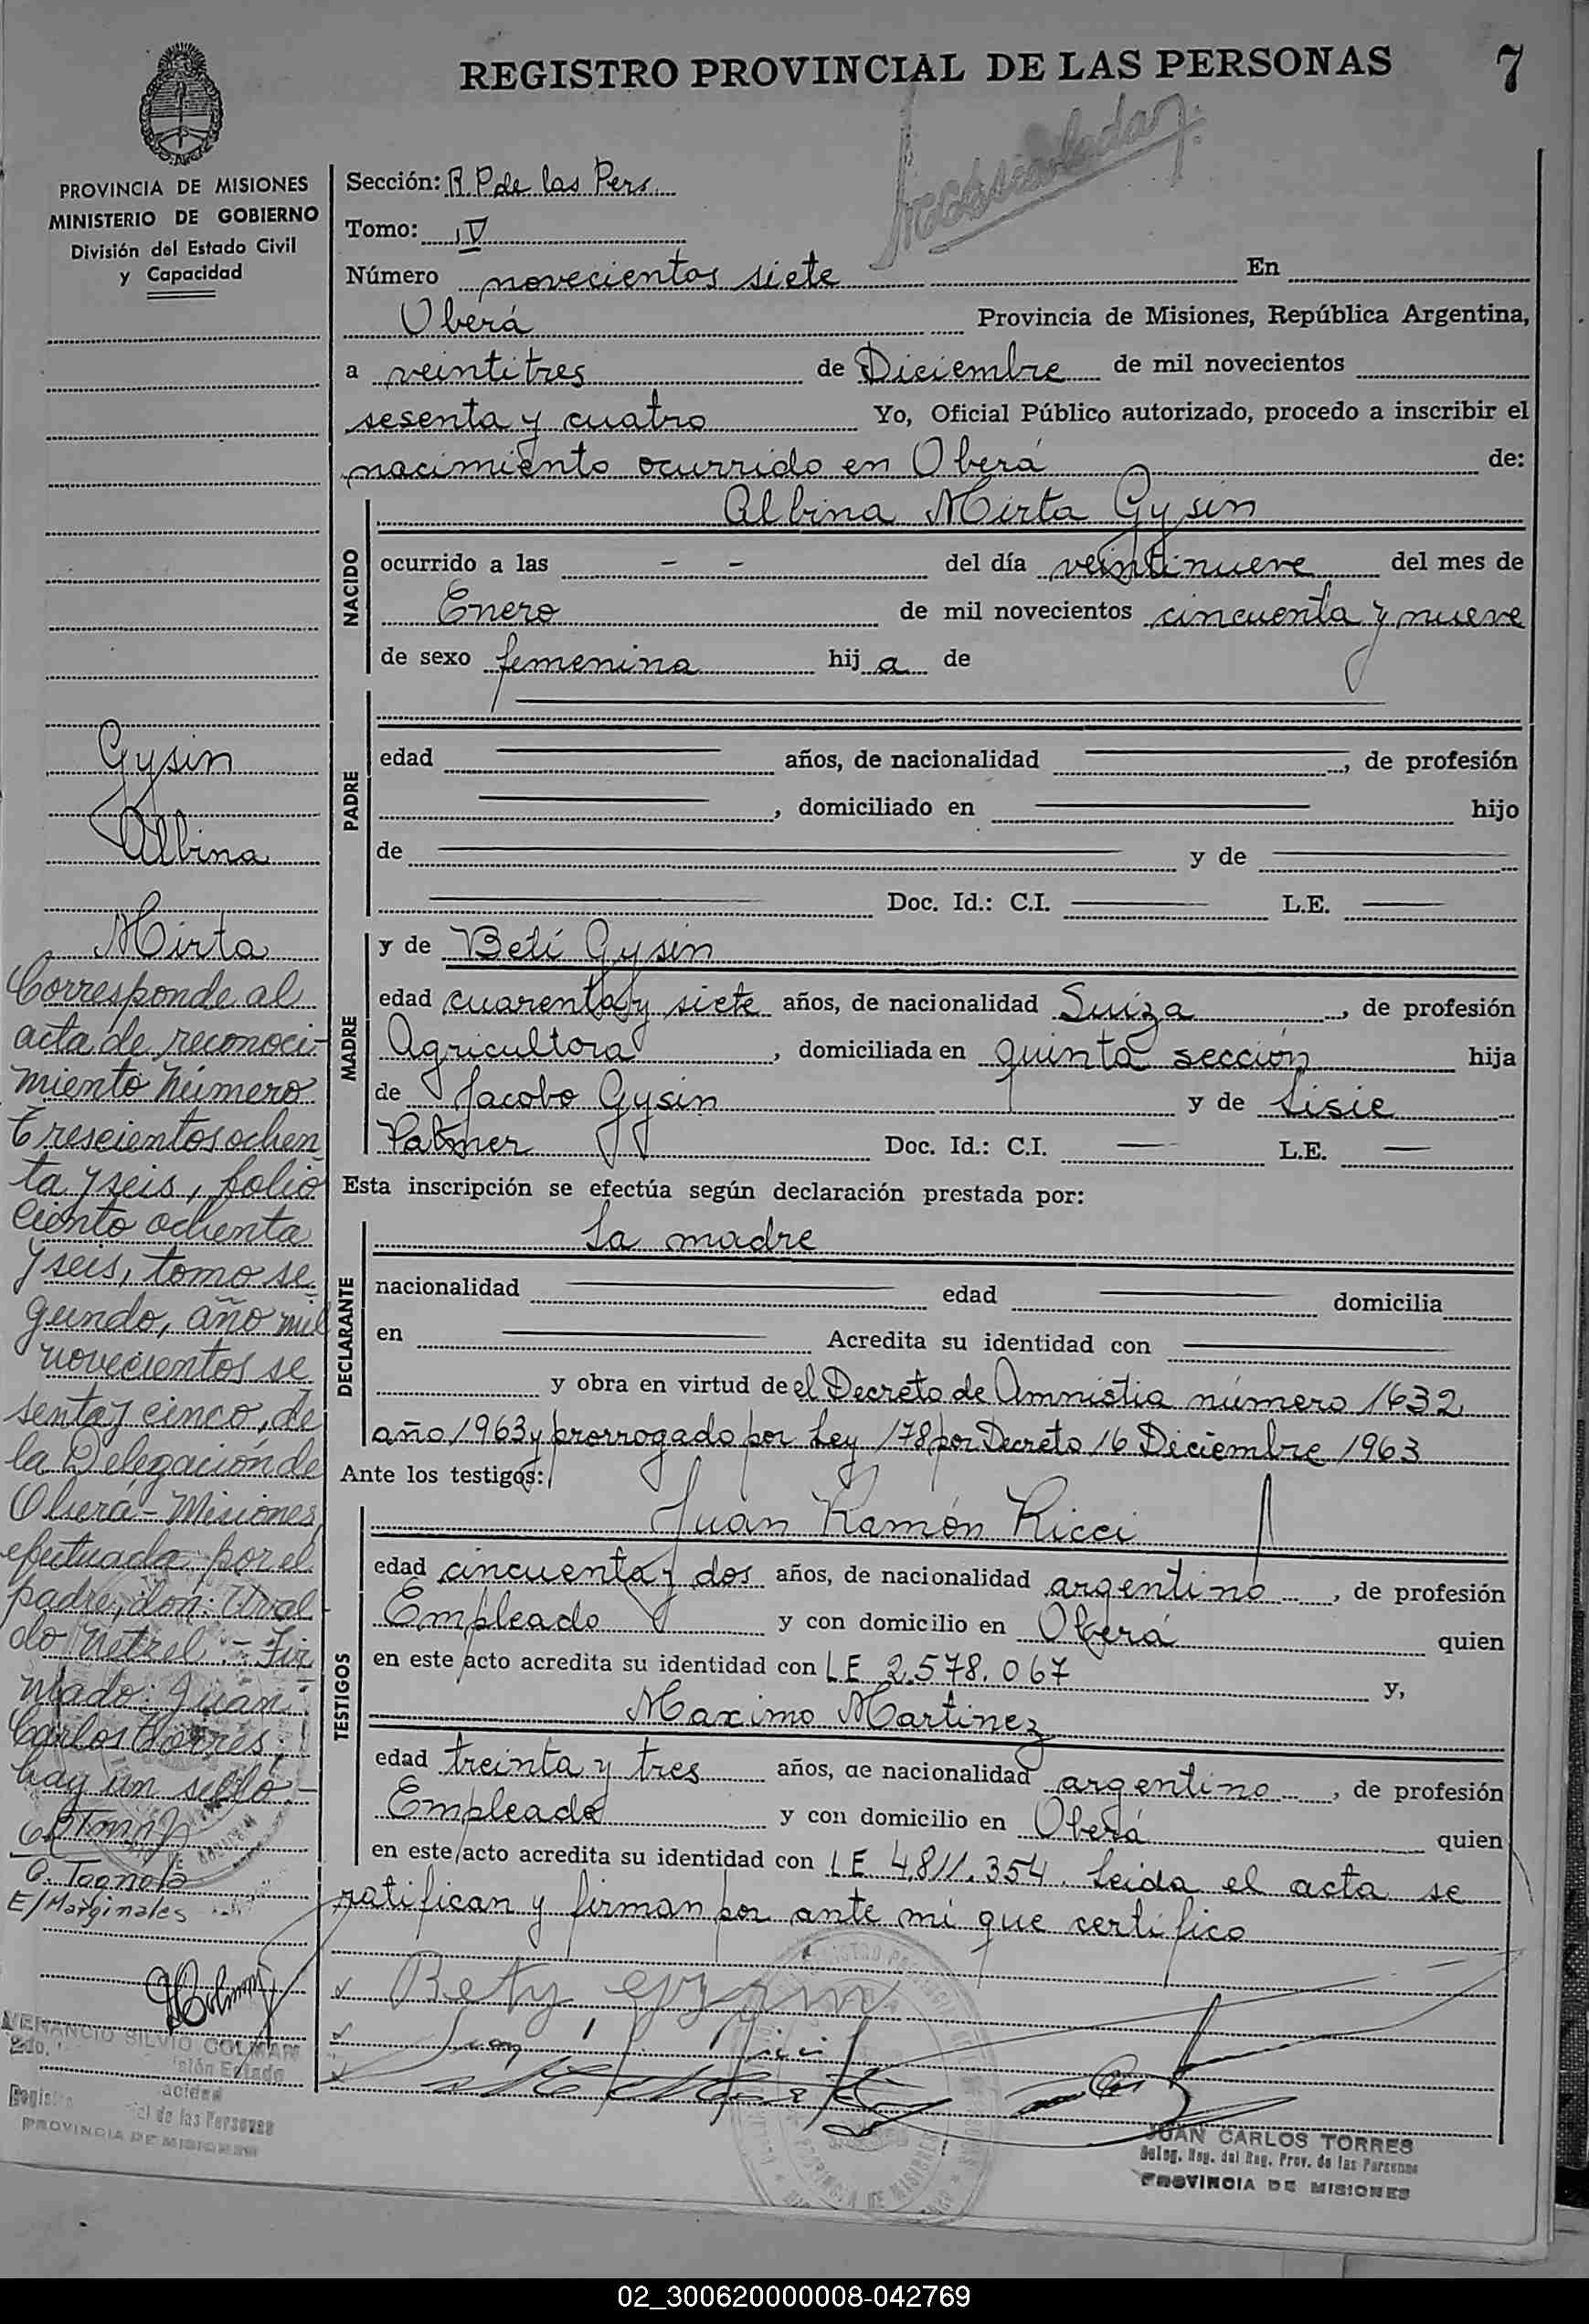 REGISTRO PROVINCIAL DE LAS PERSONAS
7
PROVINCIA DE MISIONES
MINISTERIO DE GOBIERNO
División del Estado Civil
y Capacidad
Sección: R. P. de las Pers.
Tomo: IV
Número novecientos siete En
Oberá Provincia de Misiones, República Argentina,
a veintitres de Diciembre de mil novecientos
sesenta y cuatro Yo, Oficial Público autorizado, procedo a inscribir el
nacimiento ocurrido en Oberá de:
NACIDO
Albina Mirta Gysin
ocurrido a las - - del día veintinueve del mes de
Enero de mil novecientos cincuenta y nueve
de sexo femenina hija de
PADRE
edad años, de nacionalidad , de profesión
, domiciliado en hijo
de y de
Doc. Id.: C.I. L.E.
MADRE
y de Beti Gysin
edad cuarenta y siete años, de nacionalidad Suiza , de profesión
Agricultora , domiciliada en quinta sección hija
de Jacobo Gysin y de Lisie
Doc. Id.: C.I. — L.E. —
Esta inscripción se efectúa según declaración prestada por:
DECLARANTE
La madre
nacionalidad edad domicilia
en Acredita su identidad con
y obra en virtud de el Decreto de Amnistia número 1632
año 1963 y prorrogado por Ley 178 por Decreto 16 Diciembre 1963
Ante los testigos:
TESTIGOS
Juan Ramón Ricci
edad cincuenta y dos años, de nacionalidad argentino , de profesión
Empleado y con domicilio en Oberá quien
en este acto acredita su identidad con LE 2.578.067 y,
Maximo Martinez
edad treinta y tres años, de nacionalidad argentino , de profesión
Empleado y con domicilio en Oberá quien
en este acto acredita su identidad con LE 4.811.354. Leida el acta se
ratifican y firman por ante mi que certifico
Bety Gysin
JUAN CARLOS TORRES
Deleg. Reg. del Reg. Prov. de las Personas
PROVINCIA DE MISIONES
Gysin
Albina
Mirta
Corresponde al
acta de reconoci-
miento número
trescientos ochen
ta y seis, folio
ciento ochenta
y seis, tomo se
gundo, año mil
novecientos se
senta y cinco, de
la Delegación de
Oberá - Misiones,
efectuada por el
padre, don: Uval
do Netzel.- Fir
mado: Juan
Carlos Torres,
hay un sello.-
E/Marginales
VENANCIO SILVIO COLMAN
PROVINCIA DE MISIONES
02_300620000008-042769